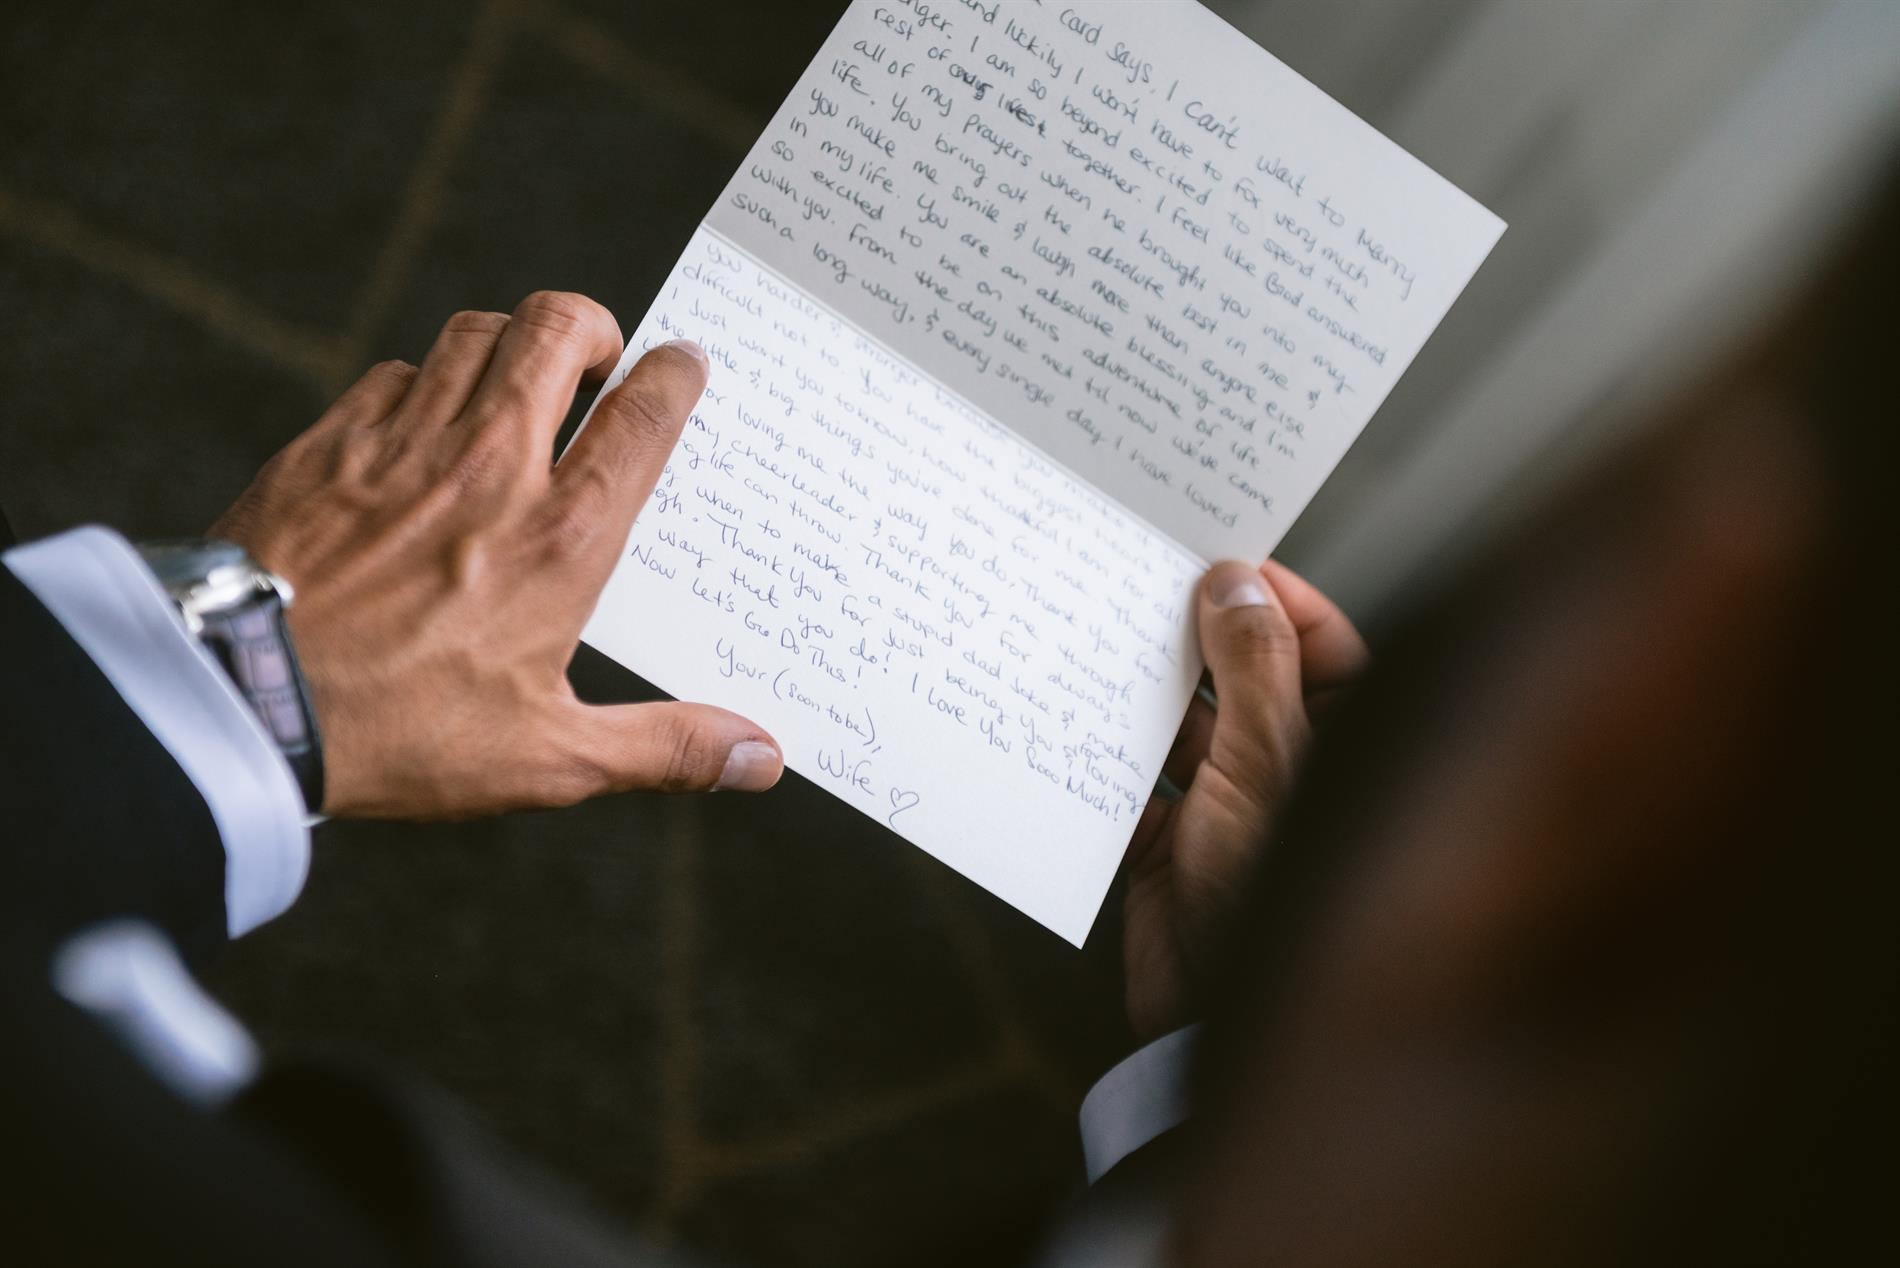 card says, I can't wait to Marry
and luckily I won't have to for very much
nger. I am so beyond excited to spend the
rest of our lives together. I feel like God answered
all of my prayers when he brought you into my
life. You bring out the absolute best in me &
you make me smile & laugh more than anyone else
in my life. You are an absolute blessing and I'm
so excited to be on this adventure of life
with you. From the day we met til now we've come
such a long way, & every single day I have loved
you harder & stronger because you make it so
difficult not to. You have the biggest heart &
I Just want you to know, how thankful I am for all
the little & big things you've done for me. Thank
for loving me the way you do, Thank you for
my cheerleader & supporting me through
life can throw. Thank you for always
when to make a stupid dad joke & make
gh. Thank you for just being you & for loving
way that you do! I Love You Sooo Much!
Now Let's Go Do This!
Your (soon to be),
Wife ♡